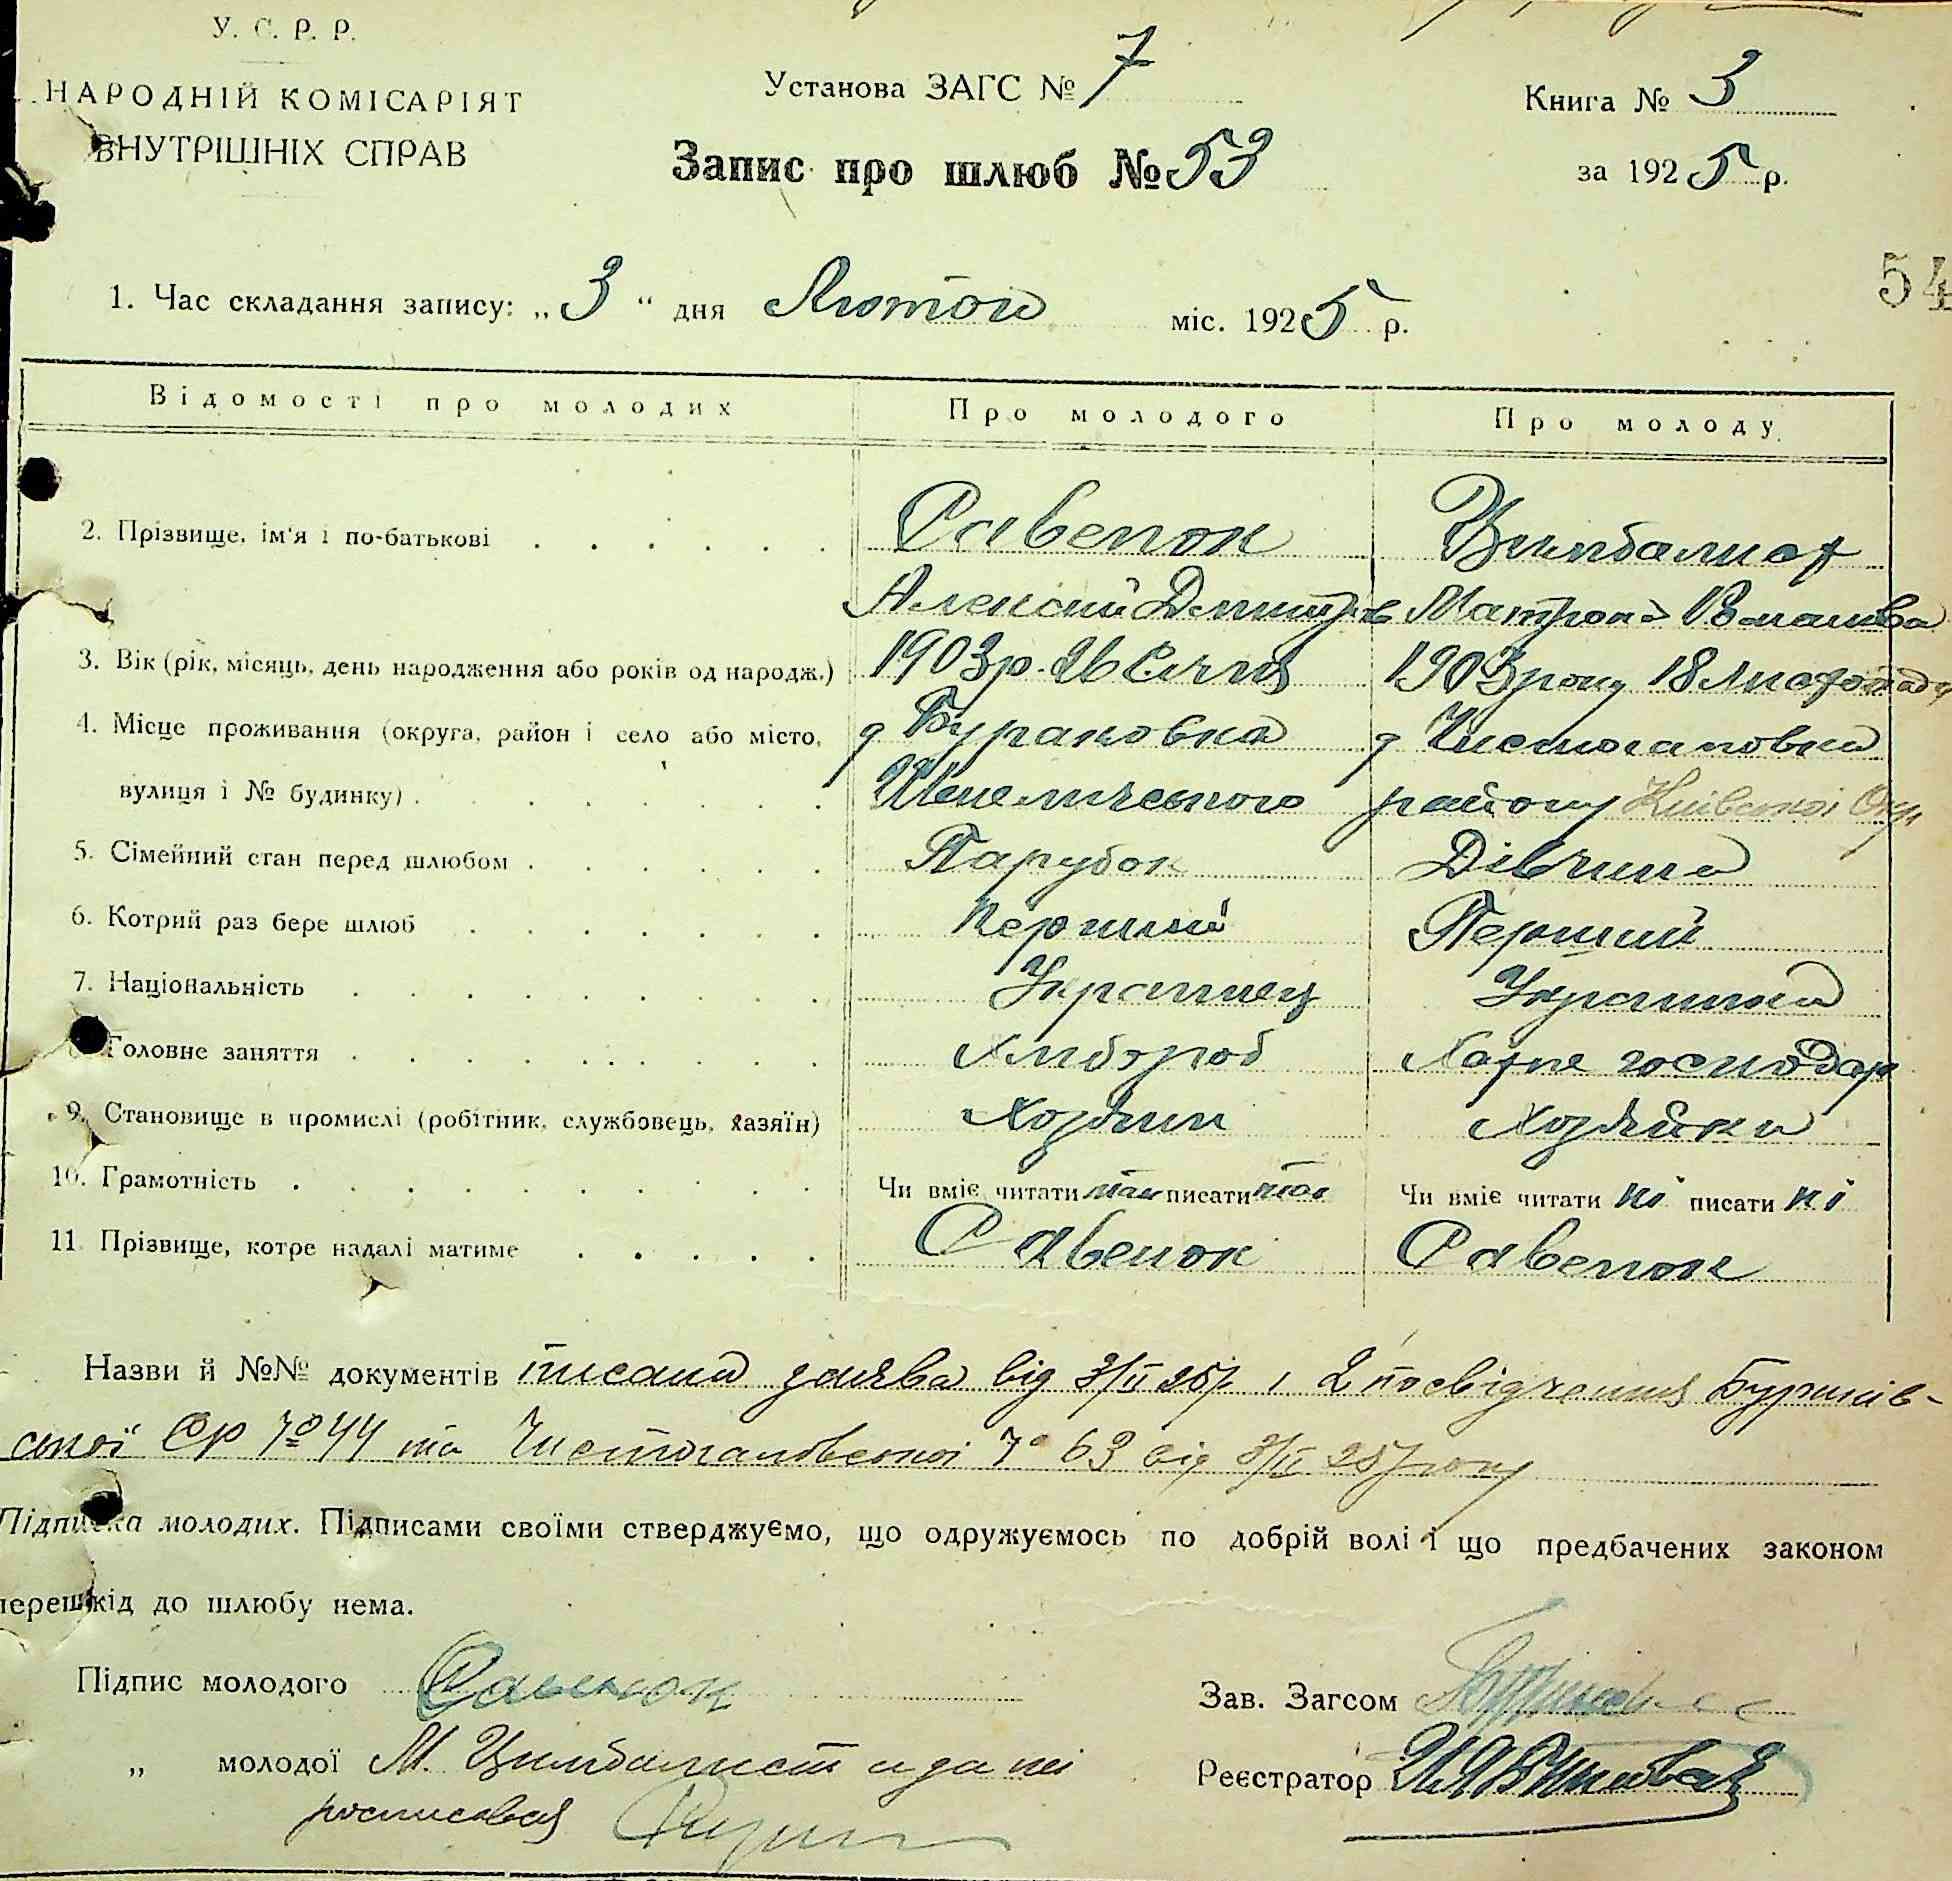 У. С. Р. Р.
НАРОДНІЙ КОМІСАРІЯТ
ВНУТРІШНІХ СПРАВ
Установа ЗАГС № 7
Запис про шлюб № 53
Книга № 3
за 1925 р.
54
1. Час складання запису: „ 3 “ дня Лютого міс. 1925 р.
Відомості про молодих Про молодого Про молоду
2. Прізвище, ім'я і по-батькові Савенок Цимбалист
Алексий Дмитров Матрона
3. Вік (рік, місяць, день народження або років од народж.) 1903 р. 26 Січня 1903 року 18 Листопада
4. Місце проживання (округа, район і село або місто, д Бураковка д Чистогаловка
вулиця і № будинку) Шепелического району Київської Окр
5. Сімейний стан перед шлюбом Парубок Дівчина
6. Котрий раз бере шлюб Перший Перший
7. Національність Украинец Украинка
8. Головне заняття Хлибороб Хатне господар
9. Становище в промислі (робітник, службовець, хазяїн) Хозяин Хозяйка
10. Грамотність Чи вміє читати так писати так Чи вміє читати ні писати ні
11. Прізвище, котре надалі матиме Савенок Савенок
Назви й №№ документів писана заява від 3/II 25 р і 2 посвідчення Буряків-
ської СР № 44 та Чистогаловської № 63 від 3/II 25 року
Підписка молодих. Підписами своїми стверджуємо, що одружуємось по добрій волі і що предбачених законом
перешкід до шлюбу нема.
Підпис молодого Савенок
Зав. Загсом
„ молодої М. Цимбалист а за неї
росписався
Реєстратор